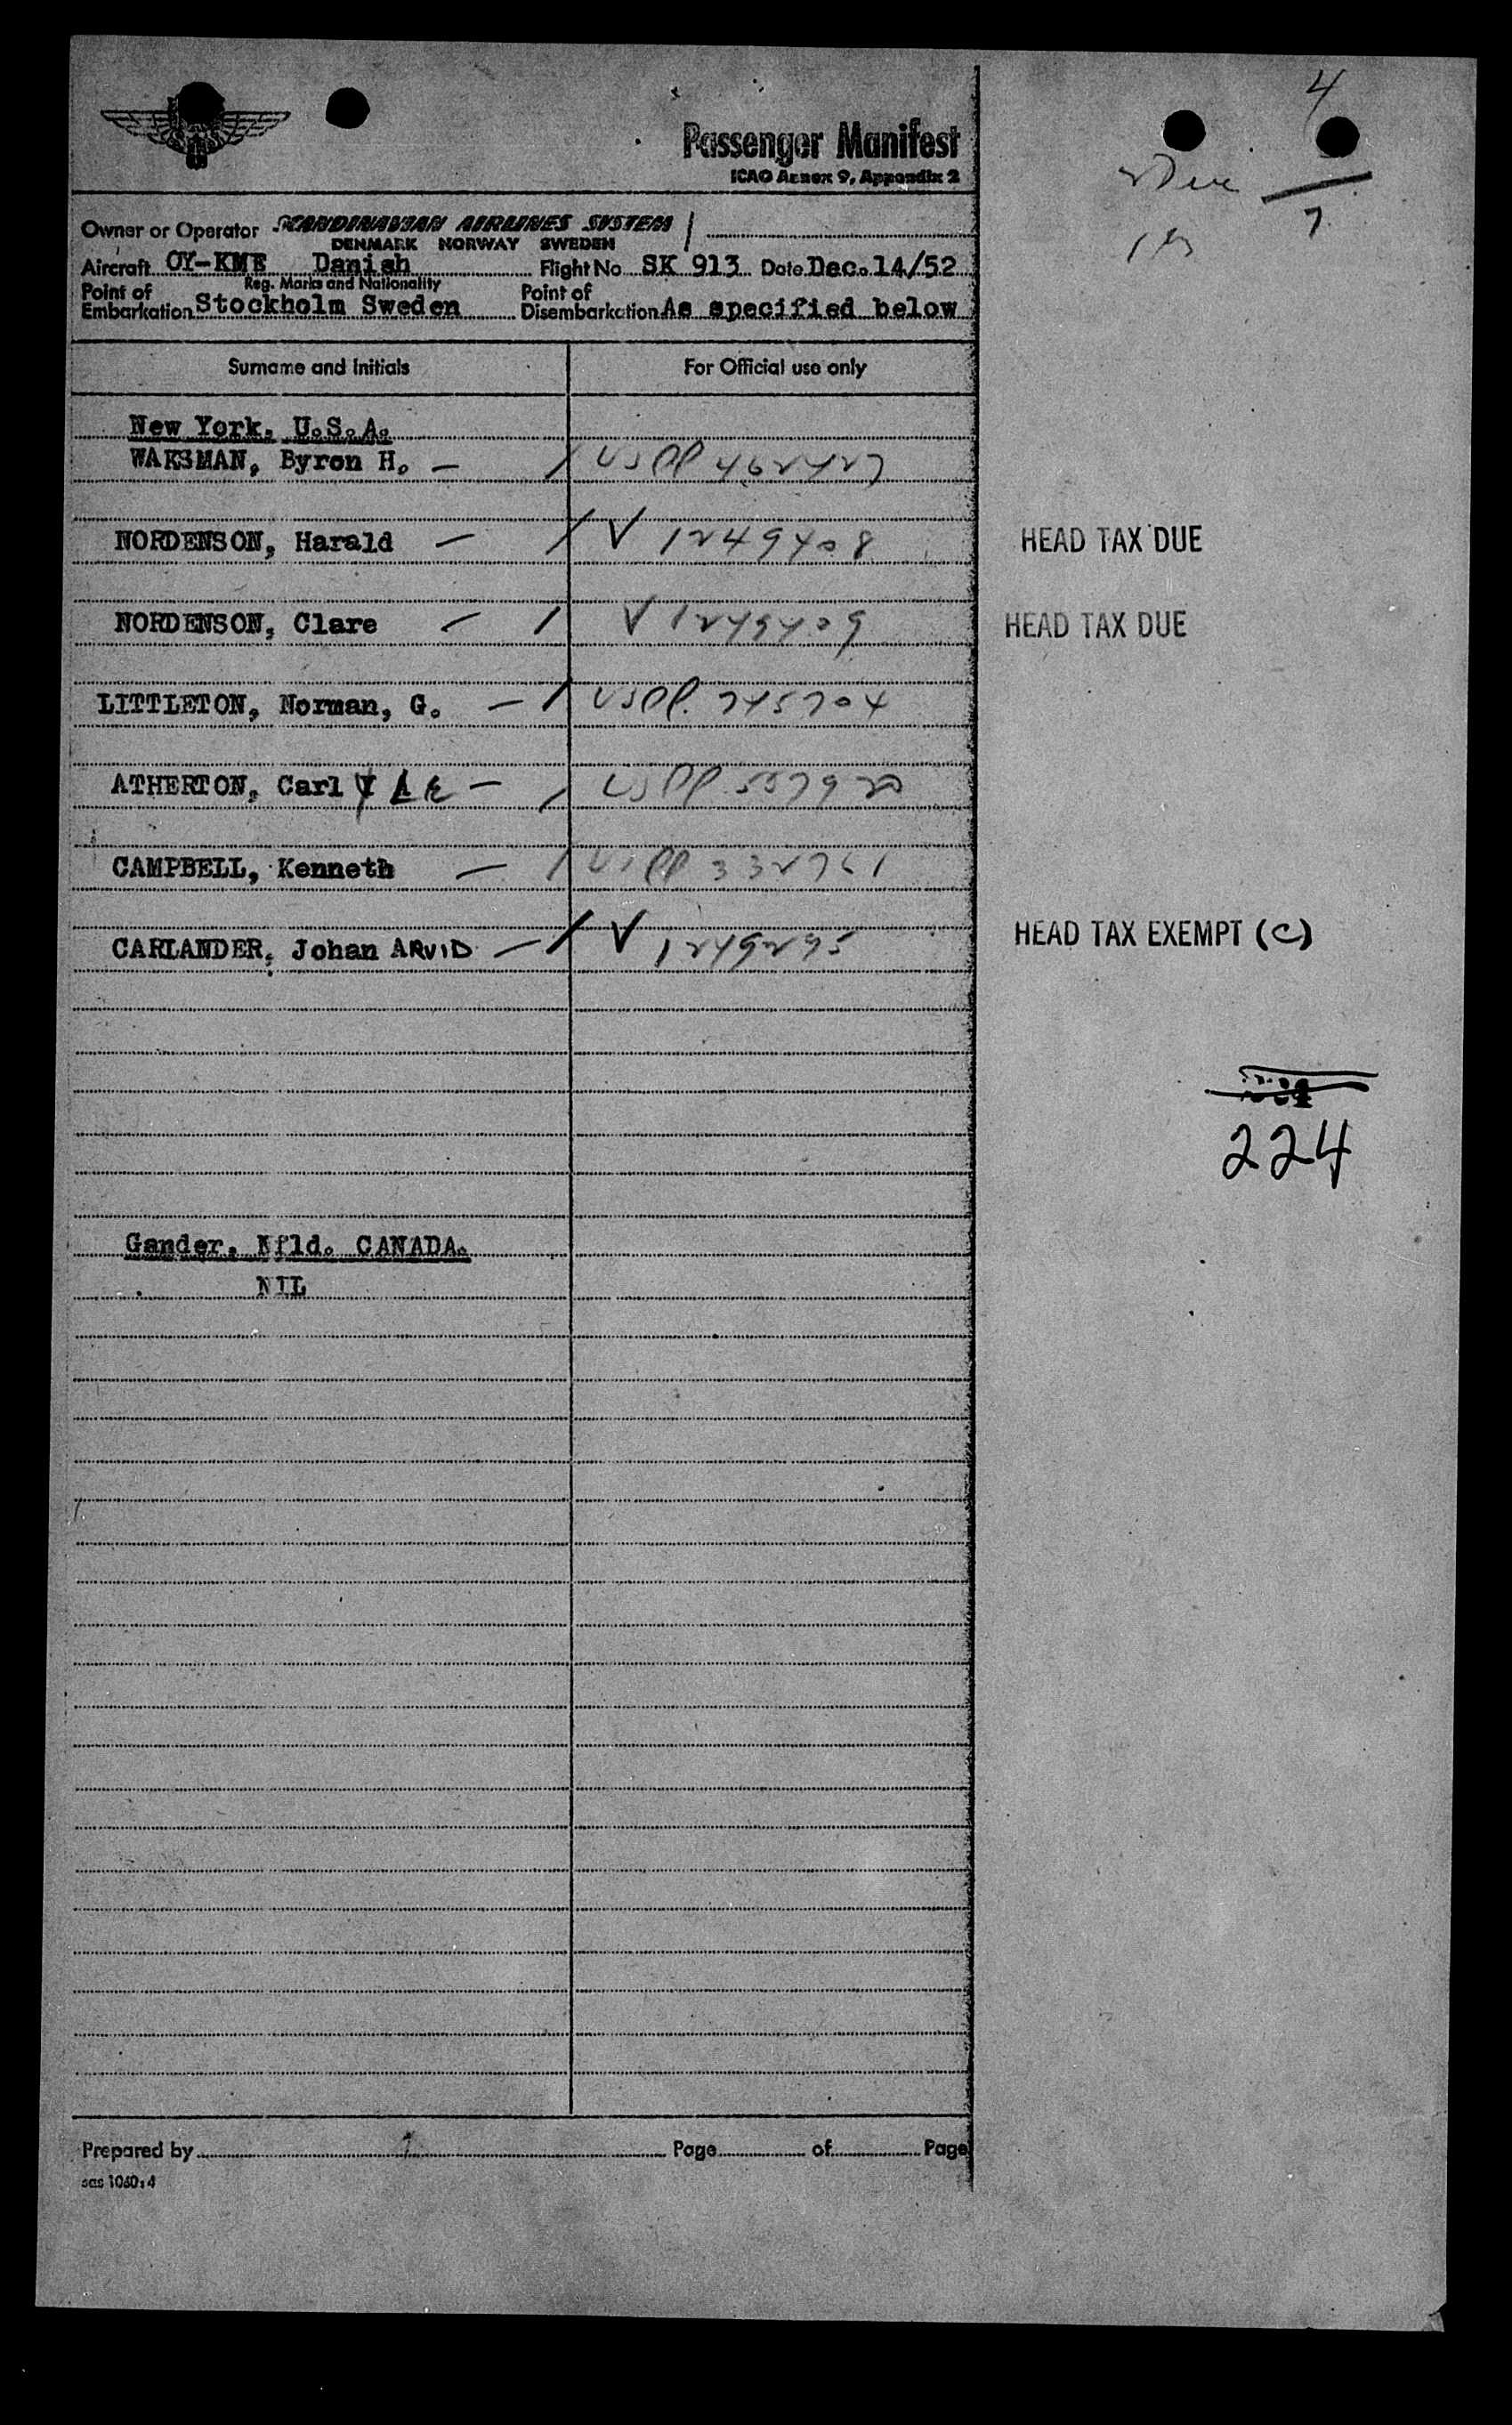 4
Passenger Manifest
ICAO Annex 9, Appendix 2
7
Owner or Operator SCANDINAVIAN AIRLINES SYSTEM
DENMARK NORWAY SWEDEN
Aircraft OY-KME Danish Flight No SK 913 Date Dec. 14/52
Reg. Marks and Nationality
Point of Embarkation Stockholm Sweden Point of Disembarkation As specified below
Surname and Initials For Official use only
New York, U.S.A.
WAKSMAN, Byron H. — / USPP 462427
NORDENSON, Harald — / V 1249408 HEAD TAX DUE
NORDENSON, Clare — / V 1249409 HEAD TAX DUE
LITTLETON, Norman, G. — / USPP. 745704
ATHERTON, Carl — / USPP
CAMPBELL, Kenneth — / USPP 332761
CARLANDER, Johan ARVID — / V 1249295 HEAD TAX EXEMPT (C)
224
Gander, Nfld. CANADA.
NIL
Prepared by Page of Page
sas 1060:4